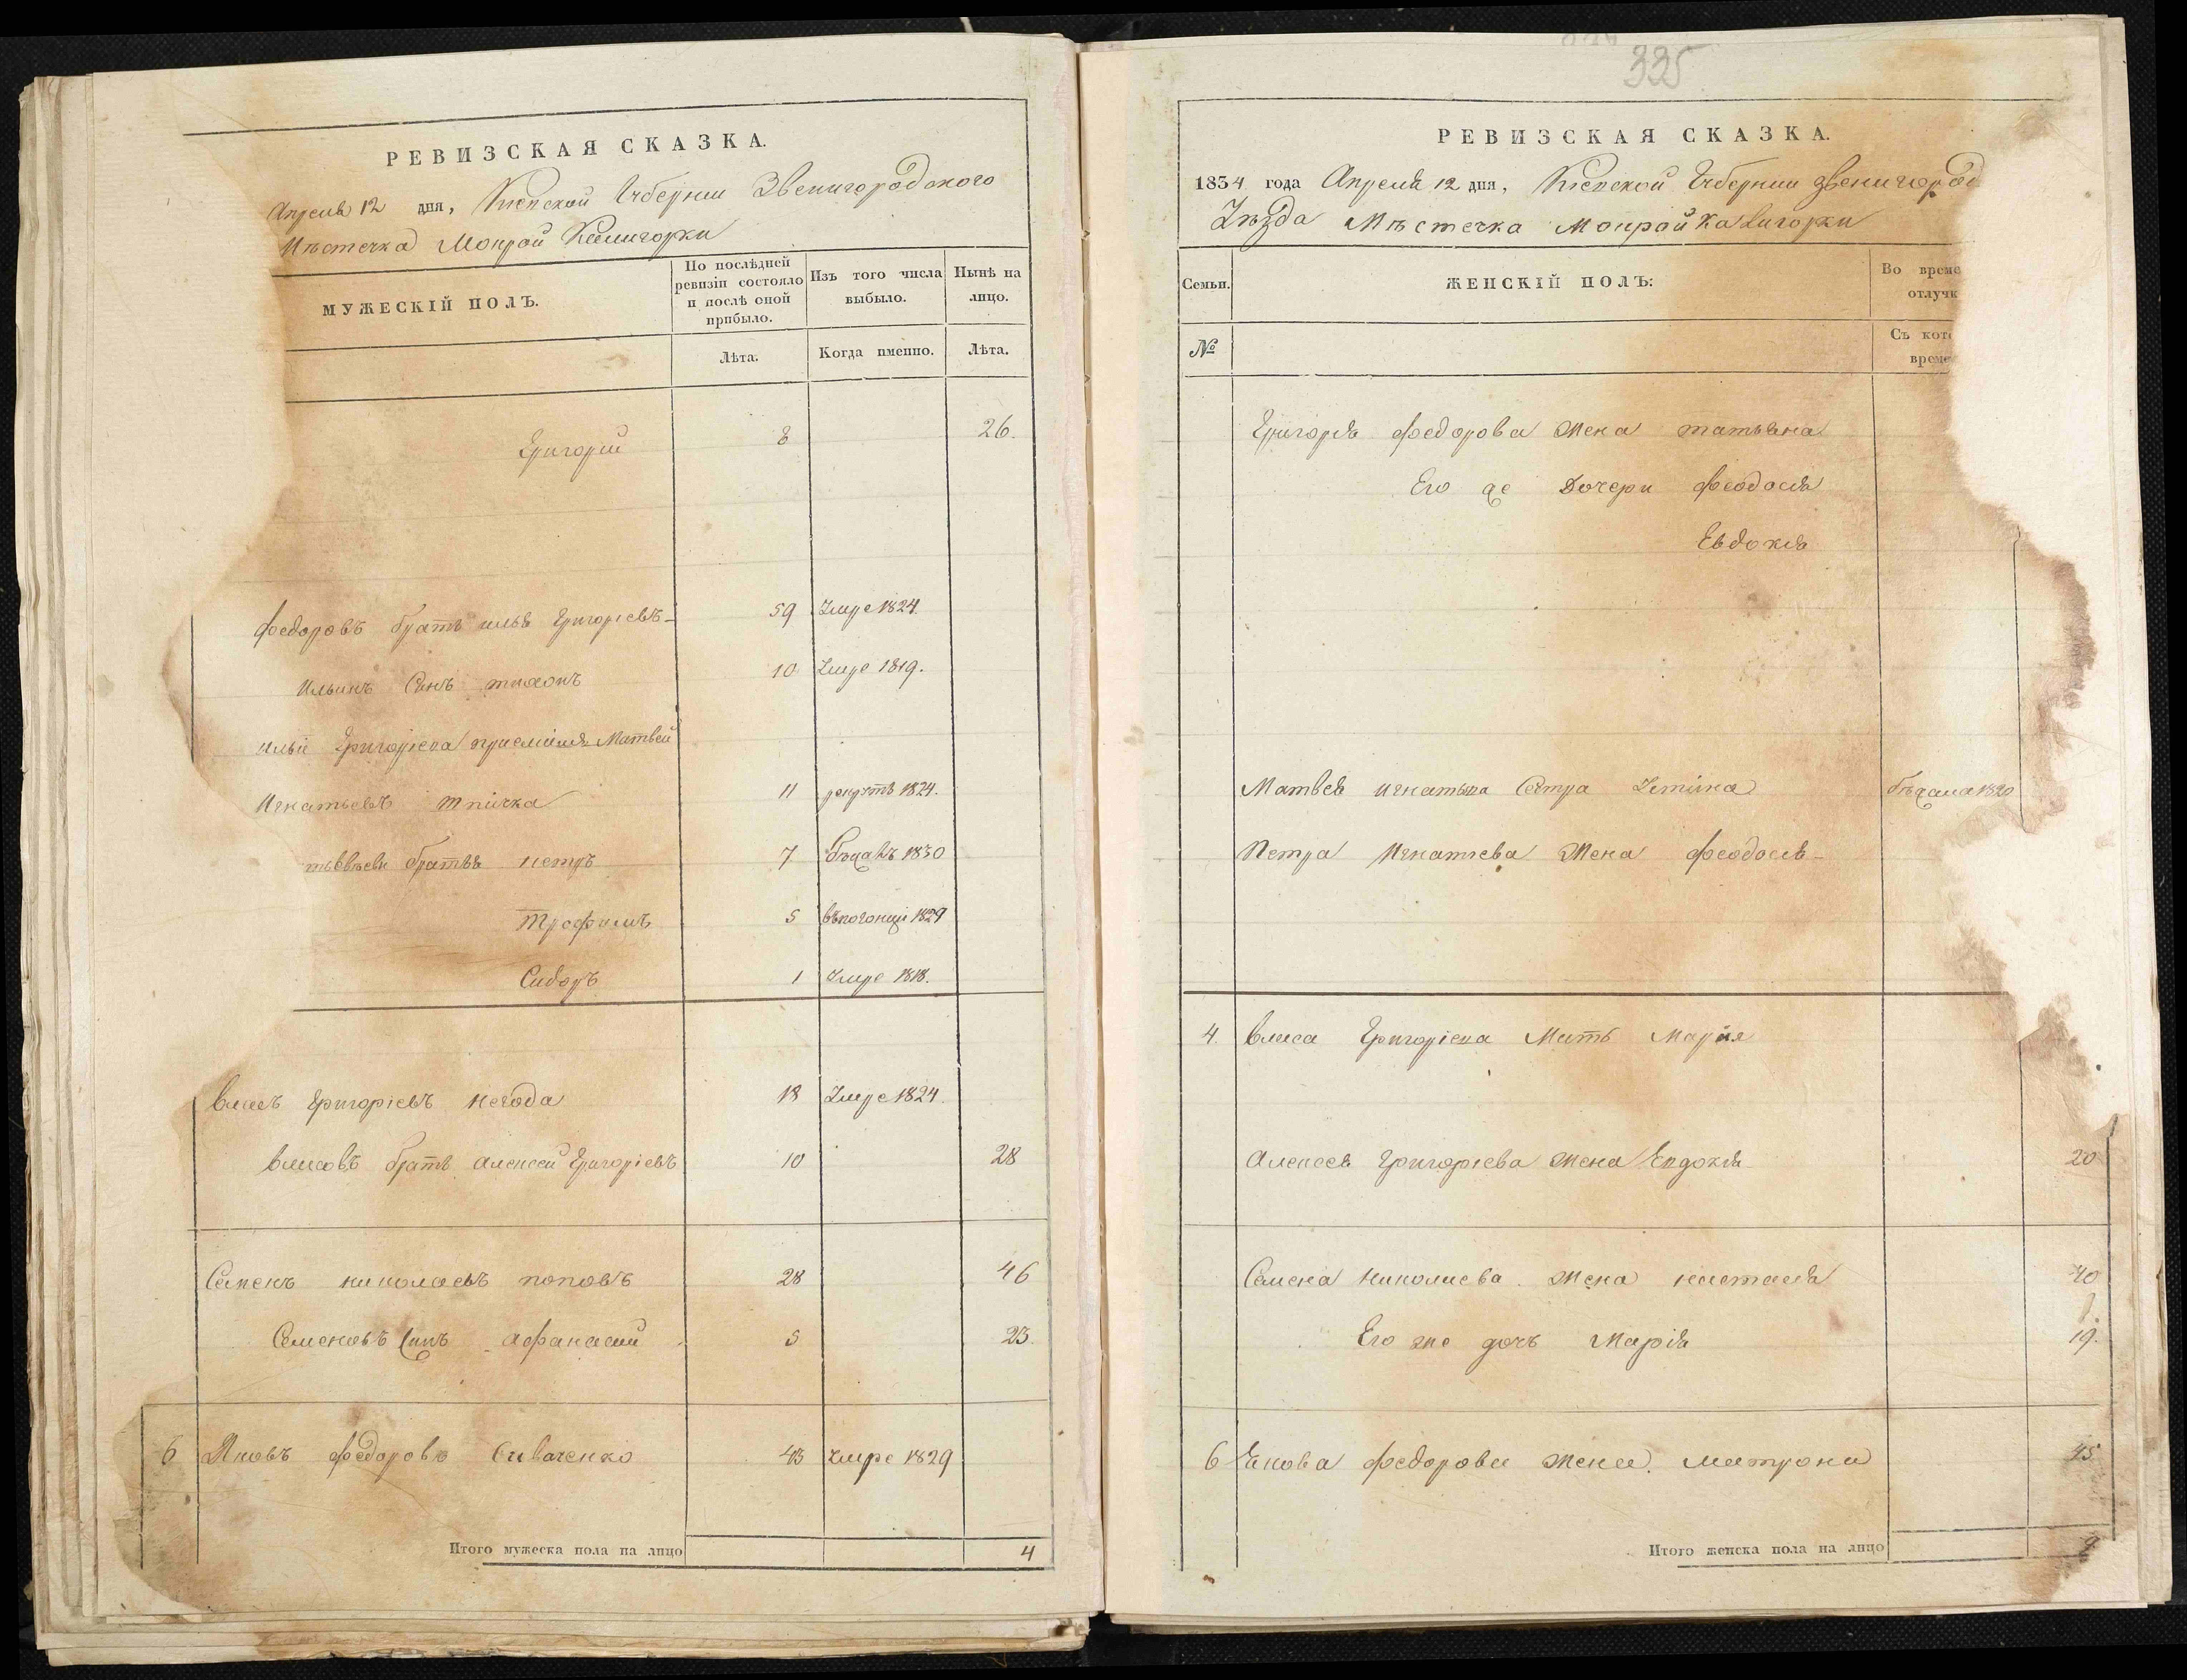 РЕВИЗСКАЯ СКАЗКА.
Апреля 12 дня, Кіевской Губерніи Звенигородского
Мѣстечка Мокрой Калигорки
МУЖЕСКІЙ ПОЛЪ.
По послѣдней ревизіи состояло и послѣ оной прибыло.
Изъ того числа выбыло.
Нынѣ на лицо.
Лѣта.
Когда именно.
Лѣта.
Григорій 8 26.
Федоровъ братъ илья Григоріевъ 59 Умре 1824.
Ильинъ Сынъ тихонъ 10 Умре 1819.
ильи Григоріева Матвей
Игнатьевъ 11 рекрутъ 1824.
братья петръ 7 Бѣжалъ 1830
Трофимъ 5 1829
Сидоръ 1 Умре 1818.
власъ Григоріевъ Негода 18 Умре 1824.
власовъ братъ Алексей Григоріевъ 10 28
Семенъ николаевъ поповъ 28 46
Семеновъ Сынъ Афанасий 5 23.
6 Яковъ Федоровъ Сиваченко 43 Умре 1829
Итого мужеска пола на лицо 4
335
РЕВИЗСКАЯ СКАЗКА.
1834 года Апреля 12 дня, Кіевской Губерніи звенигород
Уѣзда Мѣстечка Мокрой Калигорки
Семьи.
ЖЕНСКІЙ ПОЛЪ:
Во време
отлучк
№
Съ кото
време
Григорія федорова Жена татьяна
Его же Дочери феодосія
Евдокія
Матвея игнатьева Сестра Устина бѣжала 1820
Петра Игнатьева Жена феодосія
4 власа Григоріева Мать Марія
Алексея Григоріева жена Евдокія 20
Семена Николаева жена настасія 40
Его же дочь Марія 19.
6 Якова федорова жена матрона 45
Итого женска пола на лицо